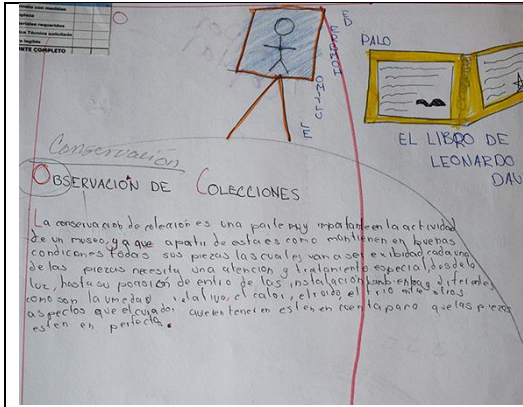 mato con medidas
mpieza
teriales requeridos
ica Técnica solicitada
a legible
NTE COMPLETO
PALO
EL LIBRO DE
LEONARDO
DAV
Conservación
OBSERVACIÓN DE COLECCIONES
La conservacion de coleccion es una parte muy importante en la actividad
de un museo, ya que apartir de esta es como mantienen en buenas
condiciones todas sus piezas las cuales van a ser exibidad cada una
de las piezas necesita una atencion y tratamiento especial, desde la
luz, hasta su posición de entro de las instalación
como son la umedad relativo, el calor, el roido, el frio entre otros
aspectos que el curador queren tener en esten en cuenta para que las piezas
esten en perfecta.